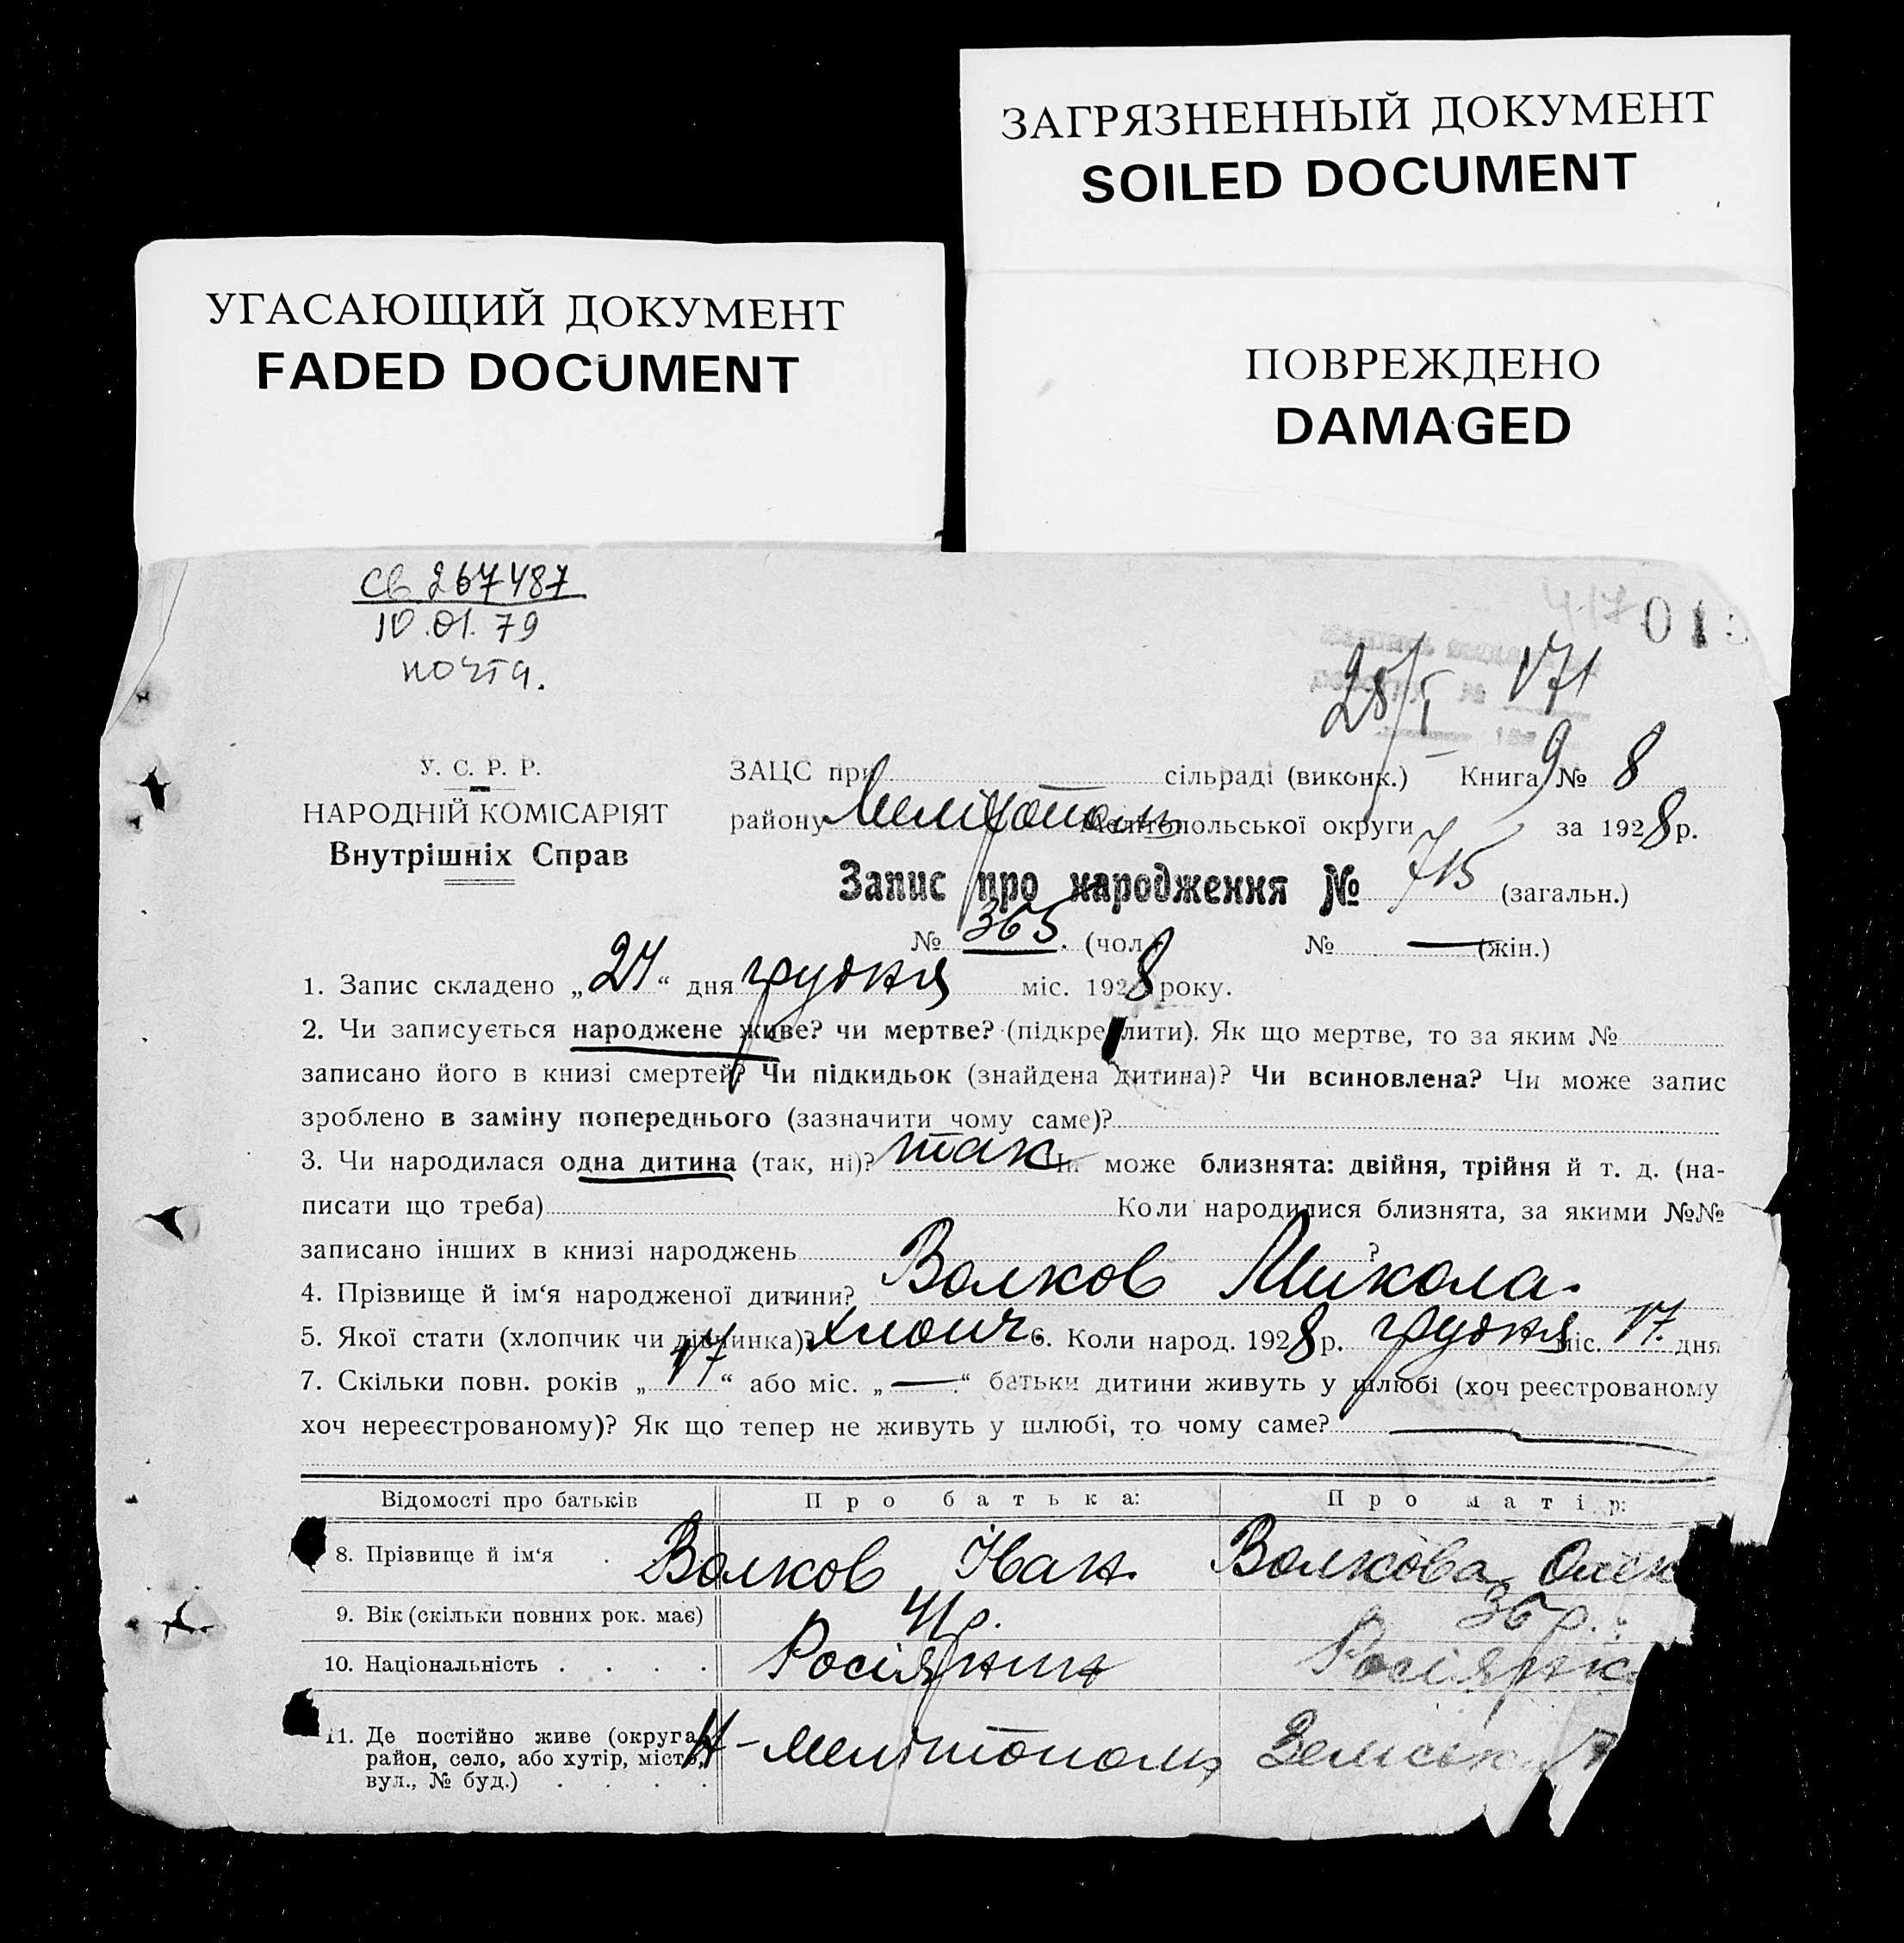 ЗАГРЯЗНЕННЫЙ ДОКУМЕНТ
SOILED DOCUMENT
УГАСАЮЩИЙ ДОКУМЕНТ
FADED DOCUMENT
ПОВРЕЖДЕНО
DAMAGED
Св 267487
10.01.79
почта.
417 01
28/I 171
У. С. Р. Р.
НАРОДНІЙ КОМІСАРІЯТ
Внутрішніх Справ
ЗАЦС при сільраді (виконк.) Книга 9 № 8
району Мелітополь Мелітопольської округи за 1928 р.
Запис про народження № 715 (загальн.)
№ 365. (чол.) № — (жін.)
1. Запис складено „24“ дня грудня міс. 1928 року.
2. Чи записується народжене живе? чи мертве? (підкреслити). Як що мертве, то за яким №
записано його в книзі смертей? Чи підкидьок (знайдена дитина)? Чи всиновлена? Чи може запис
зроблено в заміну попереднього (зазначити чому саме)?
3. Чи народилася одна дитина (так, ні)? так Чи може близнята: двійня, трійня й т. д. (на-
писати що треба) Коли народилися близнята, за якими №№
записано інших в книзі народжень ?
4. Прізвище й ім‘я народженої дитини? Волков Микола.
5. Якої стати (хлопчик чи дівчинка)? хлопч. 6. Коли народ. 1928 р. грудня міс. 17. дня
7. Скільки повн. років „17“ або міс. „—“ батьки дитини живуть у шлюбі (хоч реєстрованому
хоч нереєстрованому)? Як що тепер не живуть у шлюбі, то чому саме? —
Відомості про батьків Про батька: Про матір:
8. Прізвище й ім‘я . Волков Іван. Волкова Олек
9. Вік (скільки повних рок. має) 41 р. 36 р.
10. Національність . . . . Росіянин Росіянк
11. Де постійно живе (округа,
район, село, або хутір, місто, Н-Мелітополь Земськ
вул., № буд.) . . . .